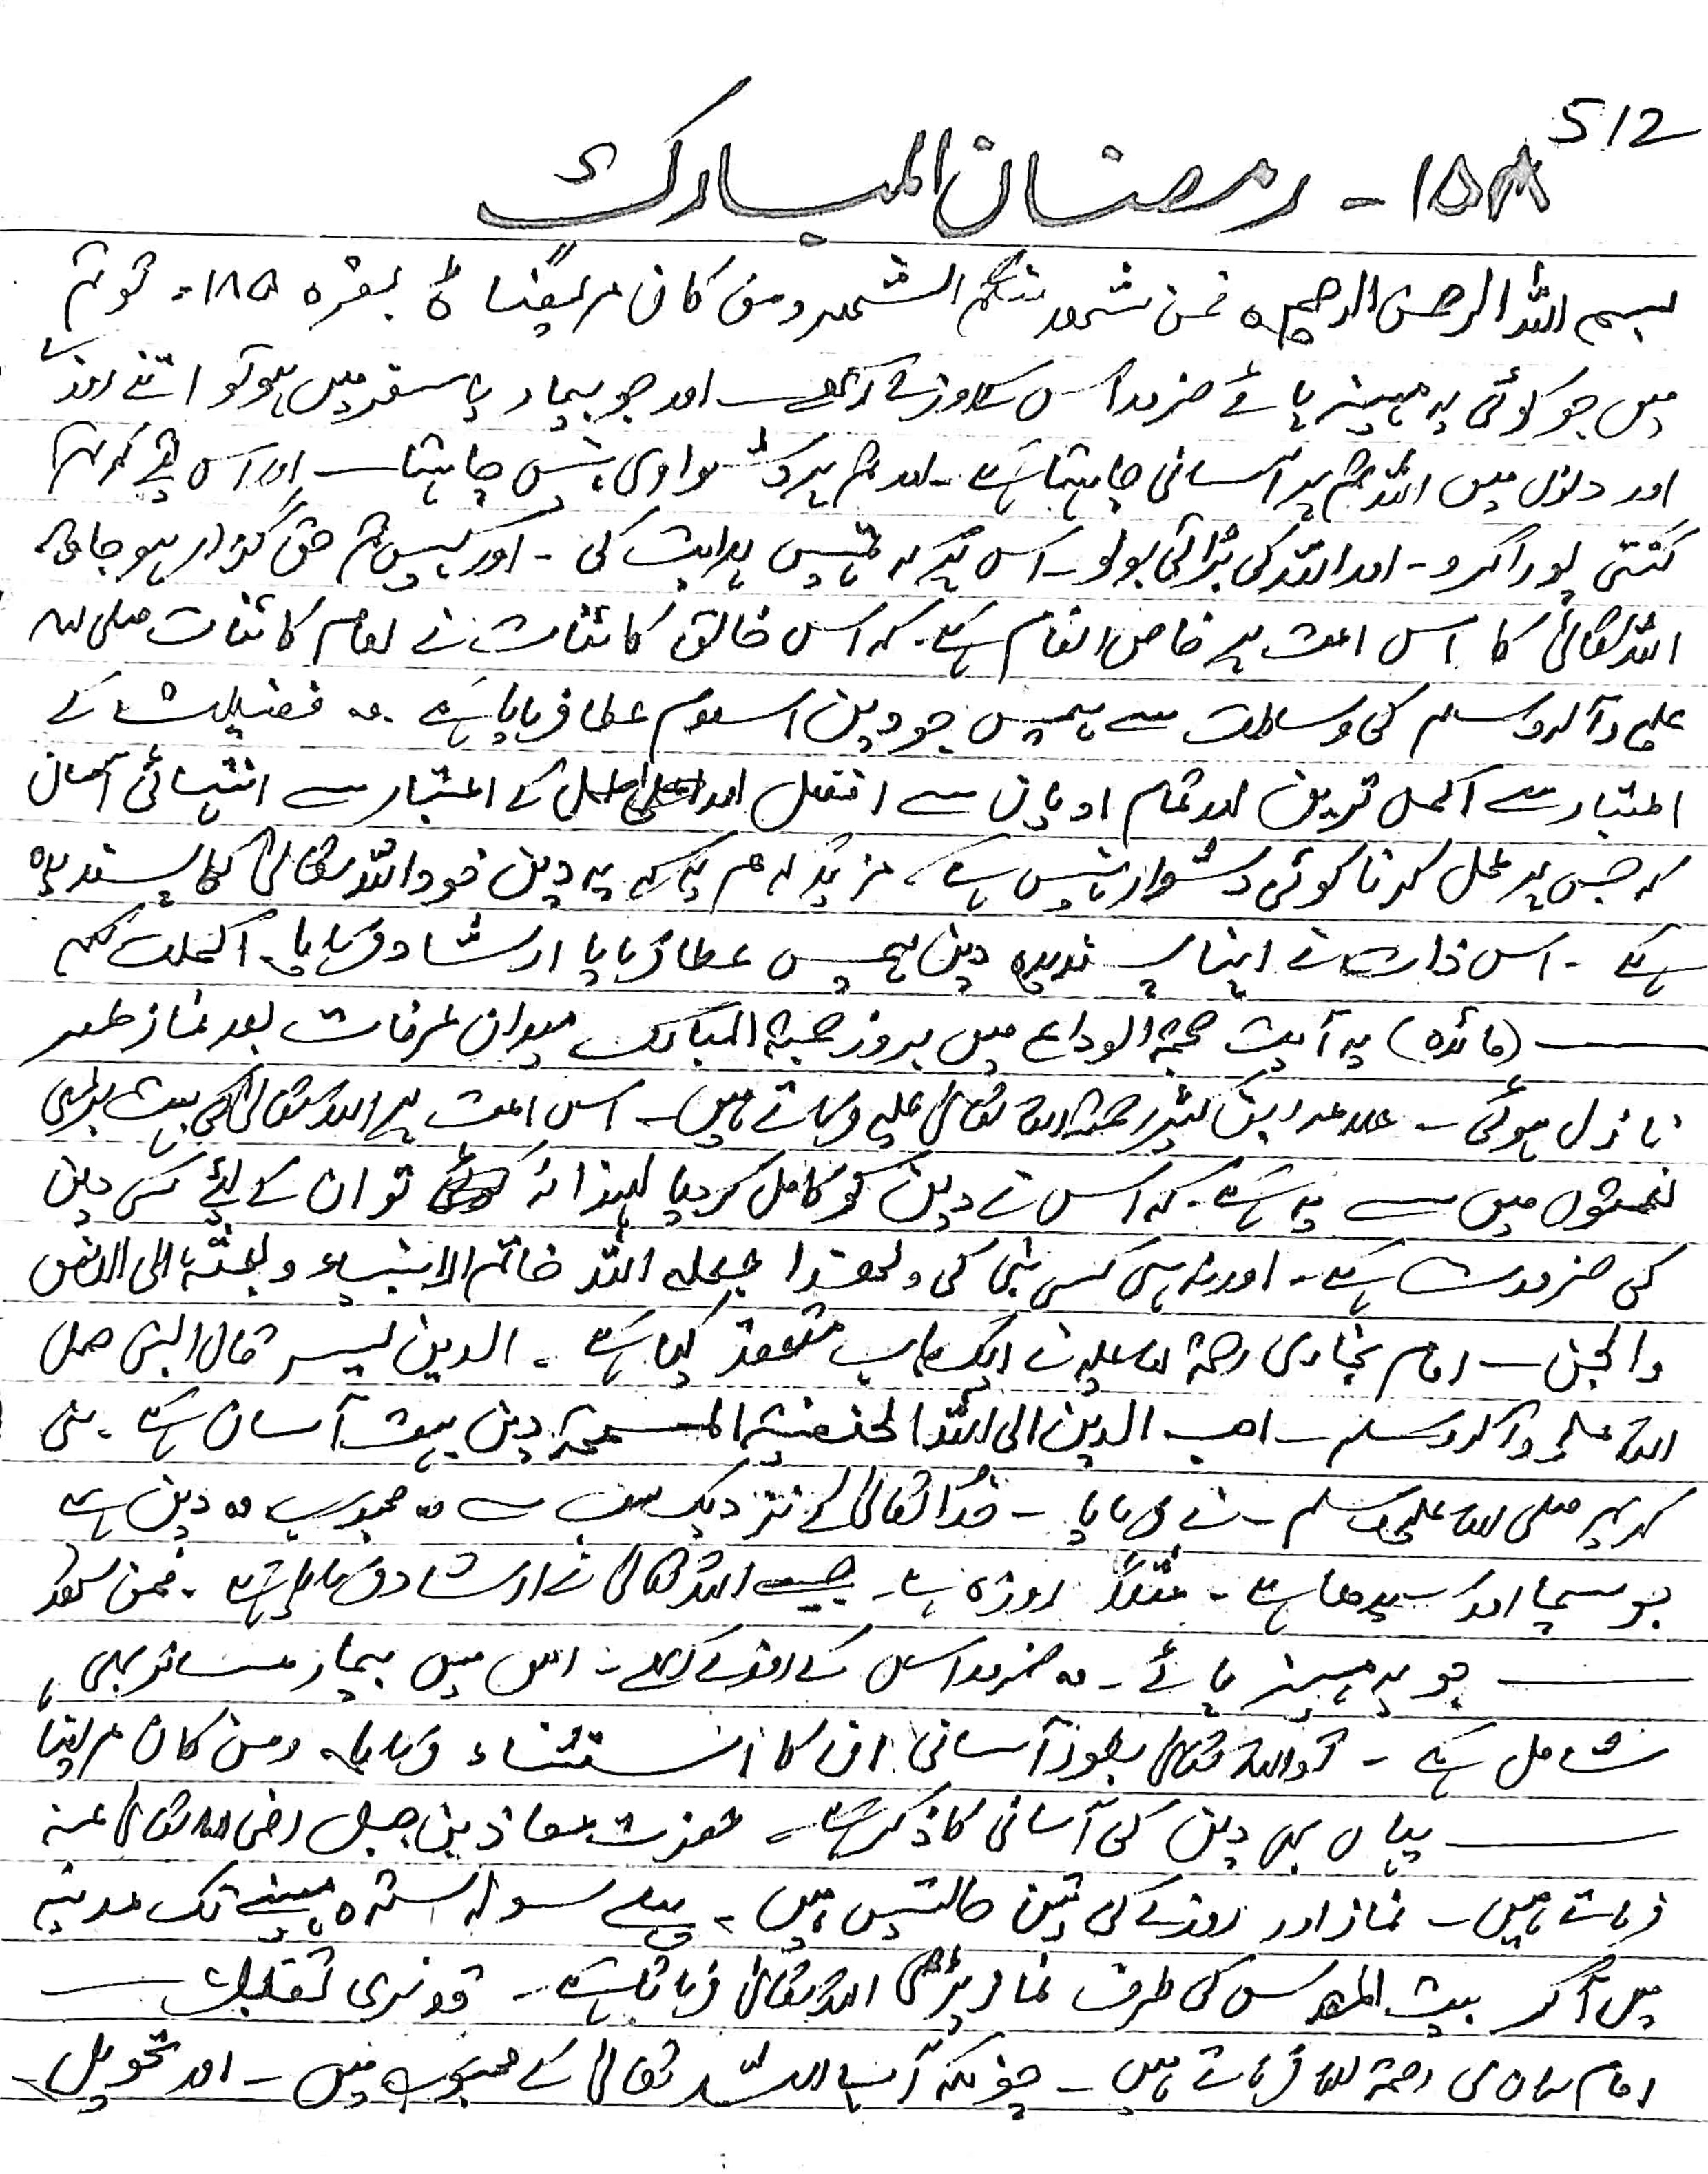 512
۱۵۸ - رمضان المبارک
بسم اللہ الرحمن الرحیم ہ فمن شھد منکم الشھر ومن کان مریضاً الخ بقرہ ۱۸۵۔ تو تم
میں جو کوئی یہ مہینہ پائے ضرور اس کے روزے رکھے۔ اور جو بیمار یا سفر میں ہو تو اتنے روزے
اور دنوں میں اللہ تم پر آسانی چاہتا ہے۔ اور تم پر دشواری نہیں چاہتا۔ اور اس لئے کہ تم
گنتی پورا کرو۔ اور اللہ کی بڑائی بولو۔ اس پر کہ تمہیں ہدایت کی۔ اور کہیں تم حق گزار ہو جاؤ۔
اللہ تعالیٰ کا اس امت پر خاص انعام ہے۔ کہ اس خالق کائنات نے امام کائنات صلی اللہ
علیہ وآلہ وسلم کی وساطت سے ہمیں جو دین اسلام عطا فرمایا ہے۔ وہ فضیلت کے
اعتبار سے اکمل ترین اور تمام ادیان سے افضل اور عمل کے اعتبار سے انتہائی آسان
کہ جس پر عمل کرنا کوئی دشوار نہیں ہے، مزید کرم یہ کہ یہ دین خود اللہ تعالیٰ کا پسندیدہ
ہے۔ اس ذات نے اپنا پسندیدہ دین ہمیں عطا فرمایا ارشاد فرمایا۔ اکملت لکم
—— (مائدہ) یہ آیت حجۃ الوداع میں بروز جمعۃ المبارک میدان عرفات بعد نماز عصر
نازل ہوئی۔ علامہ ابن کثیر رحمۃ اللہ تعالیٰ علیہ فرماتے ہیں۔ اس امت پر اللہ تعالیٰ کی بہت بڑی
نعمتوں میں سے یہ ہے۔ کہ اس نے دین کو کامل کر دیا لہذا نہ تو ان کے لئے کسی دین
کی ضرورت ہے۔ اور نہ ہی کسی نبی کی ولھذا جعلہ اللہ خاتم الانبیاء وبعثہ الی الانس
والجن۔ امام بخاری رحمۃ اللہ علیہ نے ایک باب منعقد کیا ہے۔ الدین یسر قال النبی صلی
اللہ علیہ وآلہ وسلم۔ احب الدین الی اللہ الحنفیۃ السمحۃ دین بہت آسان ہے۔ نبی
کریم صلی اللہ علیہ وسلم۔ نے فرمایا۔ خدا تعالیٰ کے نزدیک سب سے وہ محبوب وہ دین ہے
جو سچا اور سیدھا ہے۔ مثلاً روزہ ہے۔ جیسے اللہ تعالیٰ نے ارشاد فرمایا ہے۔ فمن شھد
—— جو یہ مہینہ پائے۔ وہ ضرور اس کے روزے رکھے۔ اس میں بیمار مسافر بھی
شامل ہے۔ تو اللہ تعالیٰ بطور آسانی ان کا استثناء فرمایا۔ ومن کان مریضاً
—— یہاں بھی دین کی آسانی کا ذکر ہے۔ حضرت معاذ بن جبل رضی اللہ تعالیٰ عنہ
فرماتے ہیں۔ نماز اور روزے کی تین حالتیں ہیں۔ پہلے سولہ سترہ مہینے تک مدینہ
میں آکر بیت المقدس کی طرف نماز پڑھی اللہ تعالیٰ فرماتا ہے۔ قد نری تقلب ——
امام رحمۃ اللہ فرماتے ہیں۔ چونکہ آپ اللہ تعالیٰ کے محبوب ہیں۔ اور تحویل